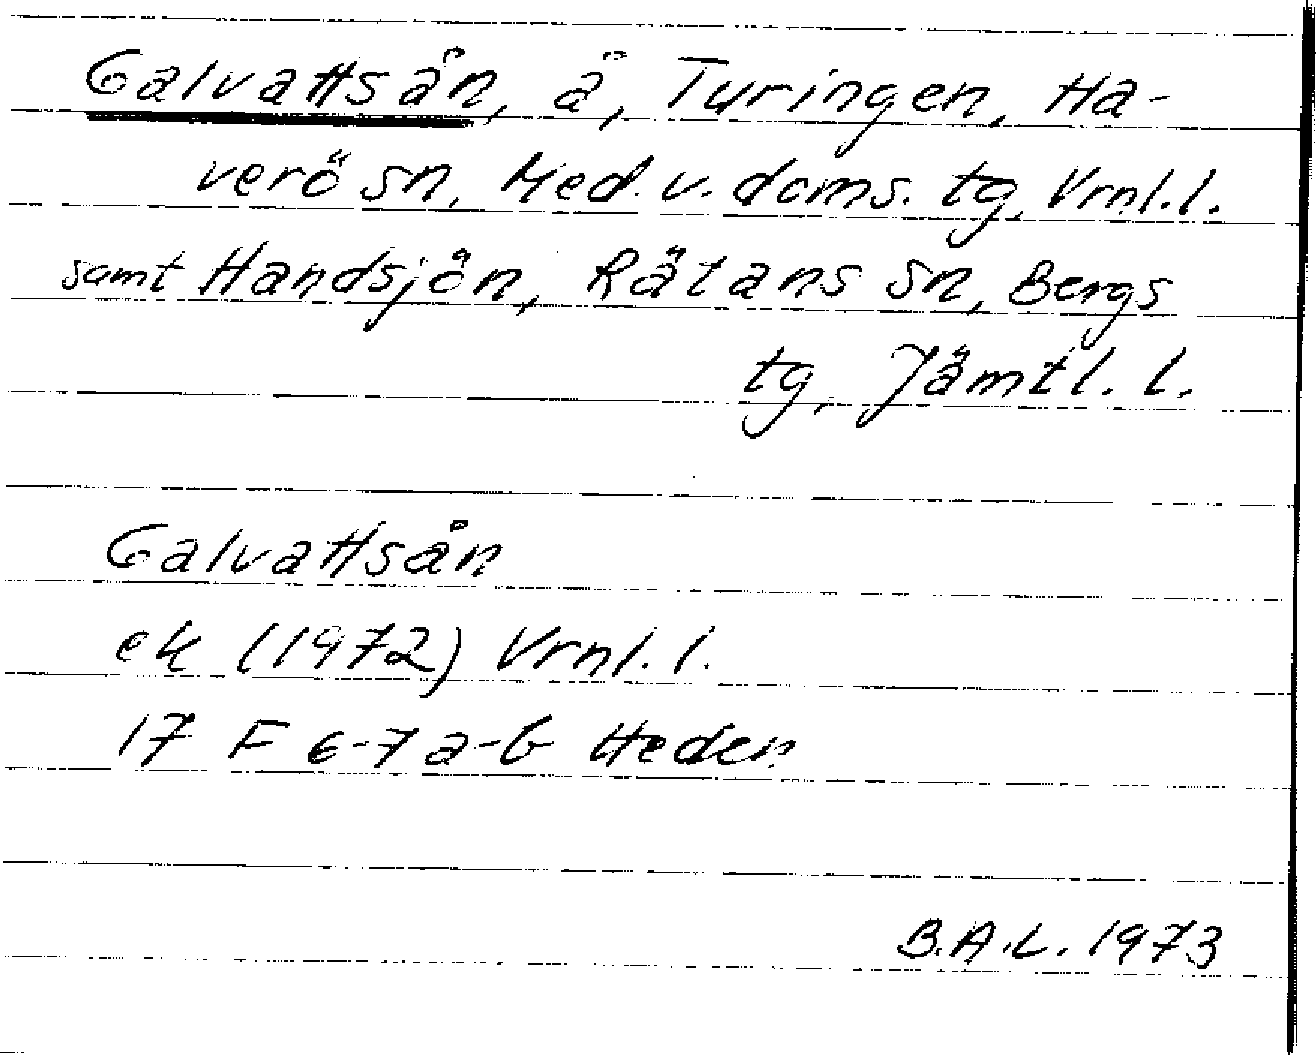 Galvattsån, å, Turingen, Ha-
verö sn, Med. v. doms. tg, Vrnl. l.
samt Handsjön, Rätans sn, Bergs
tg, Jämtl. l.
Galvattsån
ek (1972) Vrnl. l.
17 F 6-7 a-b Heden
B.A.L. 1973